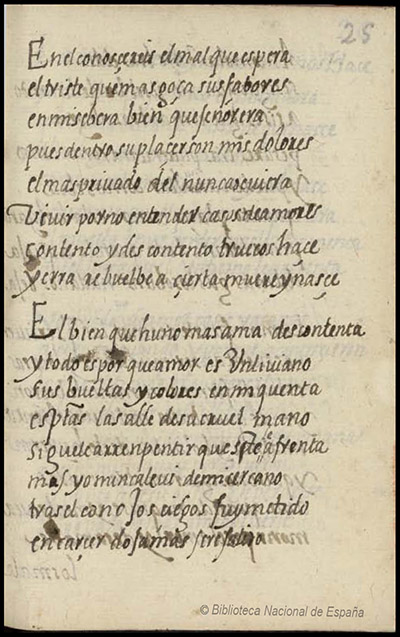 25
En el conosçereis el mal que espera
el triste que mas goça sus fabores
en mi se vera bien que señor era
pues dentro su plazer son mis dolores
el mas privado del nunca o
Vivir por no entender casos de amores
contento y descontento truecos haçe
y erra rebuelbe açierta muere y nasçe
El bien que huno mas ama descontenta
y todo es por que amor es Un liviano
sus bueltas y colores en mi quenta
las alle de su cruel mano
siguele arrenpentir que afrenta
mas yo nunca le vi de mi cercano
tras el con ojos ciegos fuy metido
en carcer do jamas sere salido
© Biblioteca Nacional de España